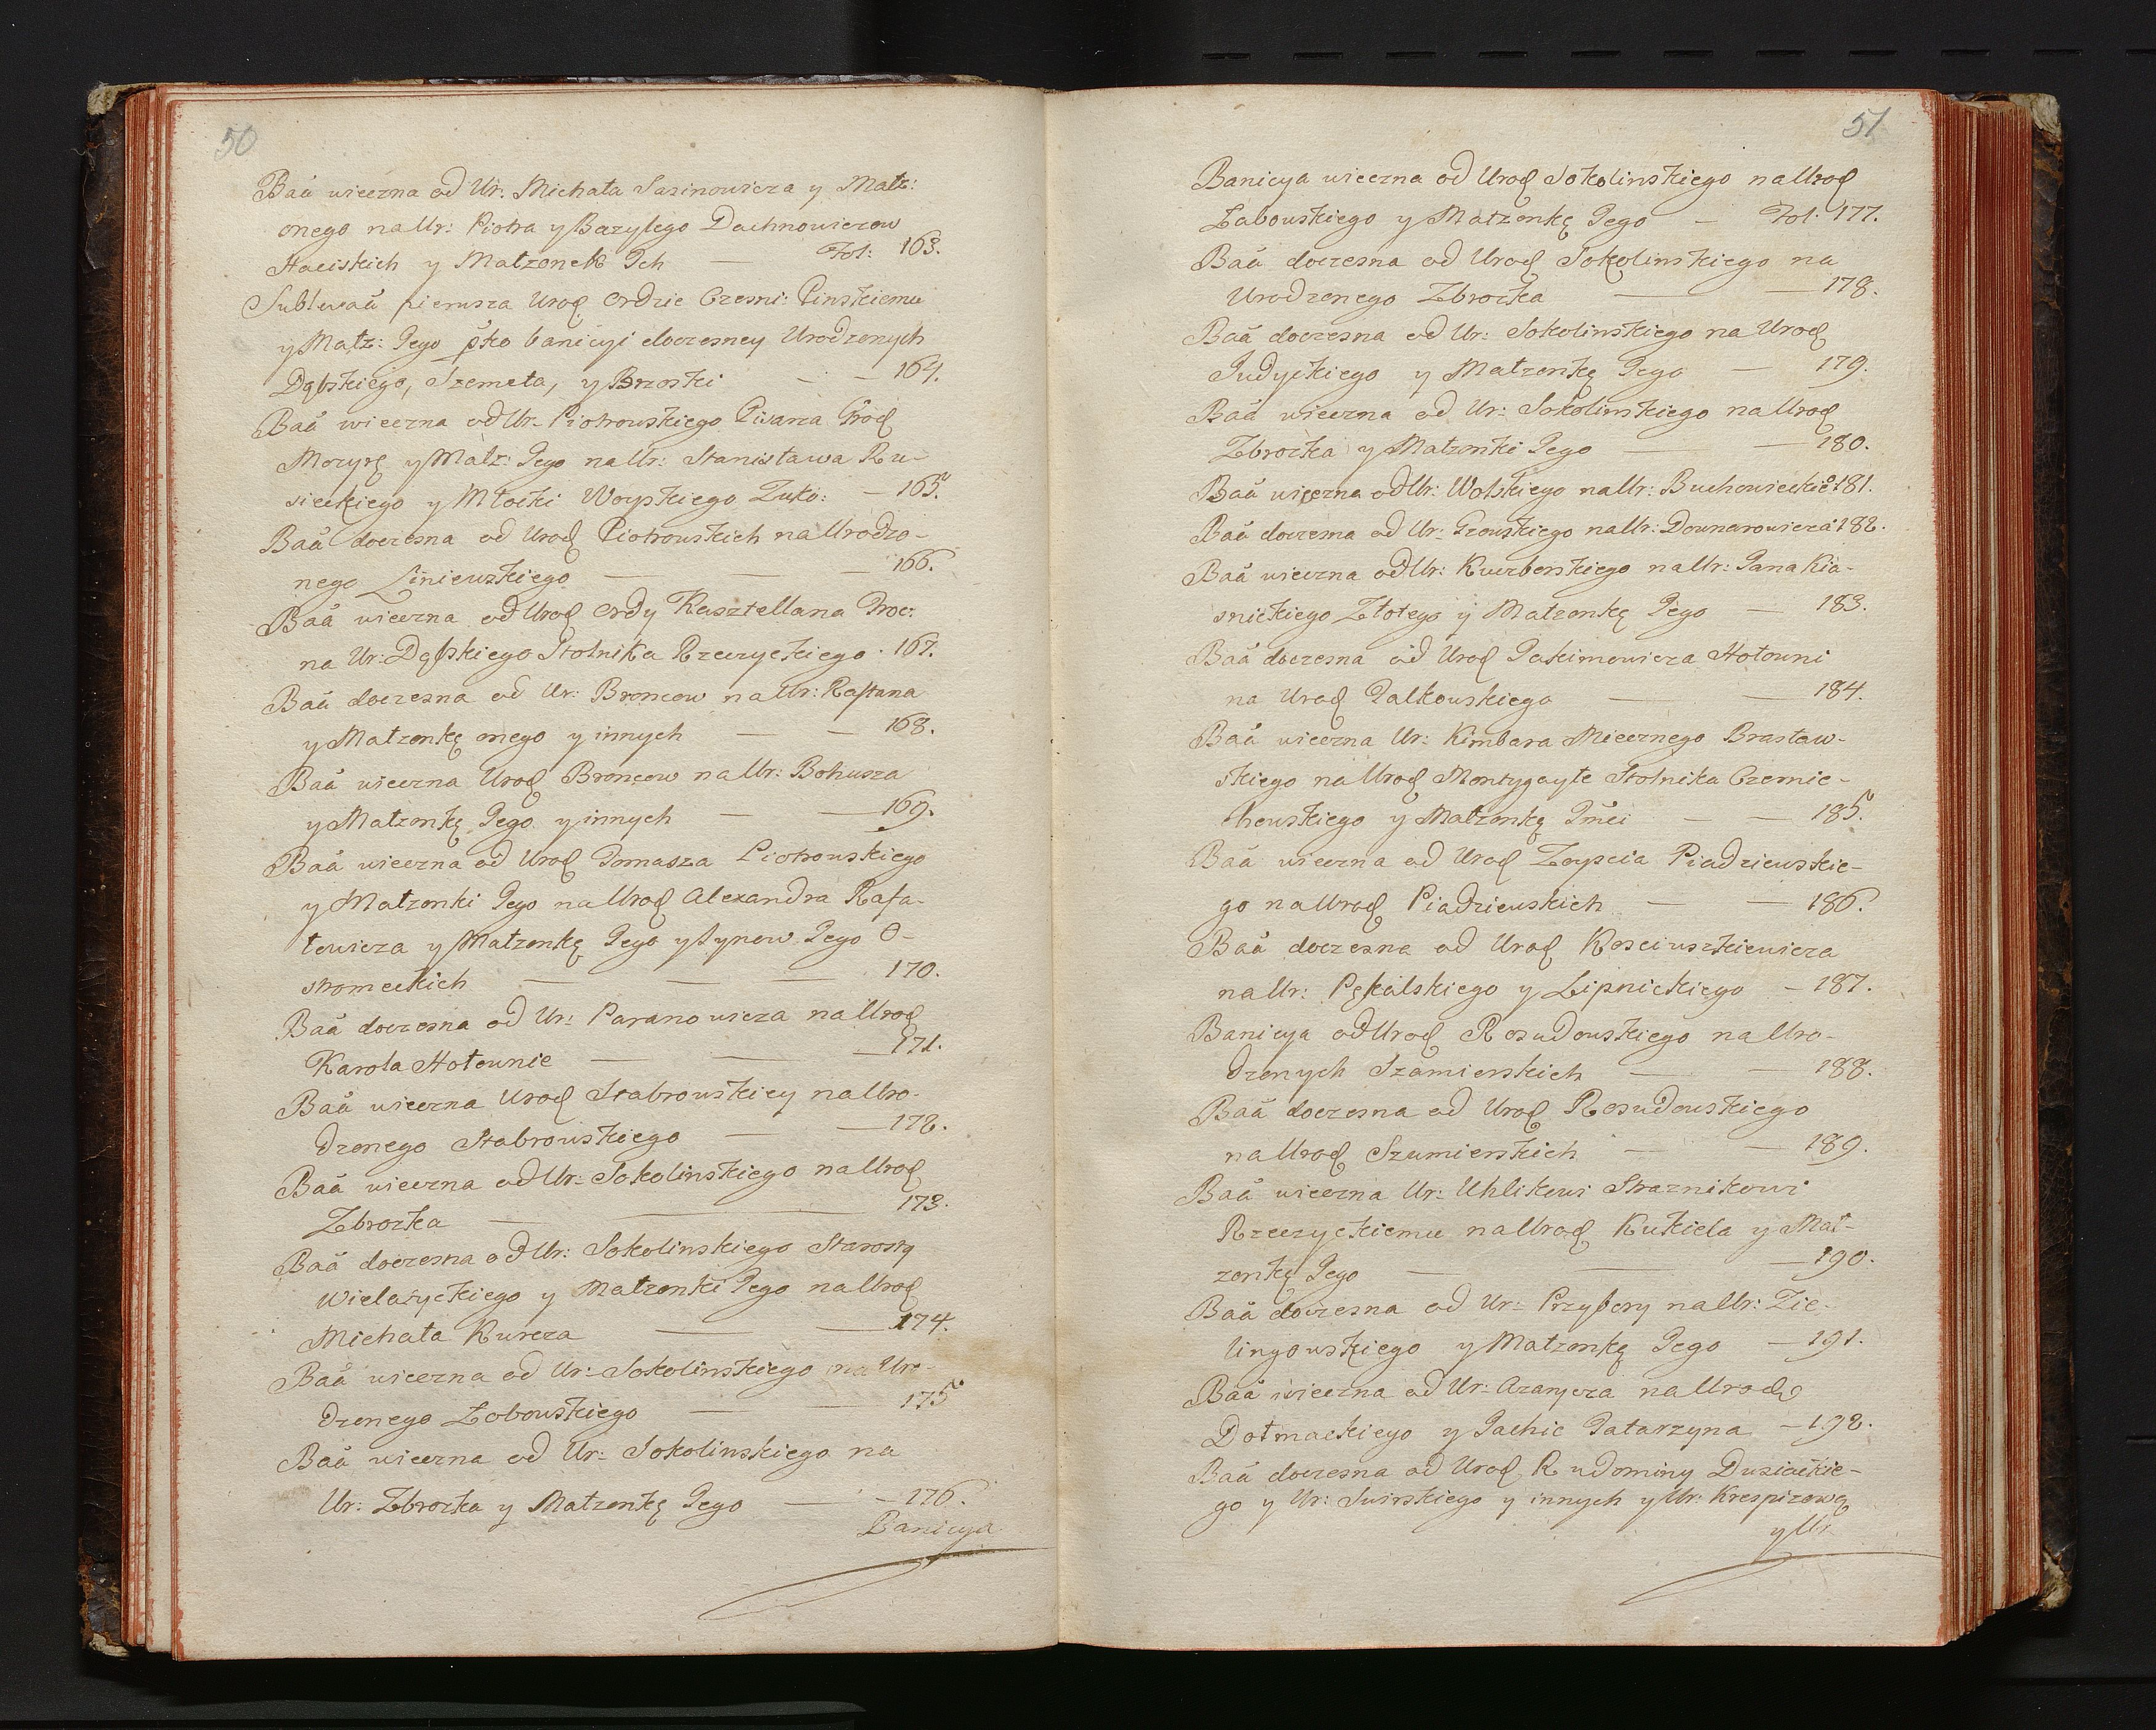 50
Baã wieczna od Ur: Michała Sasinowicza y Małż:
onego na Ur: Piotra y Bazylego Dachnowiczow
Haciskich y Małzonek Ich — Fol: 163.
Sublewaã pierwsza Urod Ordzie Czesni: Pinskiemu
y Małż: Jego pko banicyi doczesney Urodzonych
Dąbskiego, Szemeta, y Brzoski — — 164.
Baã wieczna od Ur: Piotrowskiego Pisarza Grod
Mozyrs y Małz: Jego na Ur: Stanisława Ru-
sieckiego y Młocki Woyskiego Łuko: — 165.
Baã doczesna od Urod Piotrowskich na Urodzo-
nego Liniewskiego — — — 166.
Baã wieczna od Urod Ordy Kasztellana
na Ur: Dąbskiego Stolnika Rzeczyckiego - 167.
Baã doczesna od Ur: Broncow na Ur: Rastuna
y Małzonkę onego y innych — — 168.
Baã wieczna Urod Broncow na Ur: Bohusza
y Małzonkę Jego y innych — — 169.
Baã wieczna od Urod Tomasza Piotrowskiego
y Małzonki Jego na Urod Alexandra Rafa-
łowicza y Małzonkę Jego y Synow Jego O-
stromeckich — — — 170.
Baã doczesna od Ur: Paranowicza na Urod
Karola Hołownie — — — 171.
Baã wieczna Urod Stabrowskiey na Uro-
dzonego Stabrowskiego — — 172.
Baã wieczna od Ur: Sokolinskiego na Urod
Zbrozka — — — 173.
Baã doczesna od Ur: Sokolinskiego Starosty
Wielatyckiego y Małzonki Jego na Urod
Michała Kurcza — — 174.
Baã wieczna od Ur: Sokolinskiego na Uro-
dzonego Łobowskiego — — 175
Baã wieczna od Ur: Sokolinskiego na
Ur: Zbrozka y Małzonkę Jego — — 176.
Banicya
51
Banicya wieczna od Urod Sokolinskiego na Urod
Łabowskiego y Małzonkę Jego — Fol: 177.
Baã doczesna od Urod Sokolinskiego na
Urodzonego Zbrozka — — 178.
Baã doczesna od Ur: Sokolinskiego na Urod
Judyckiego y Małzonkę Jego — 179.
Baã wieczna od Ur: Sokolinskiego na Urod
Zbrozka y Małzonki Jego — — 180.
Baã wieczna od Ur: Wolskiego na Ur: Buchowieckiego 181.
Baã doczesna od Ur: Gzowskiego na Ur: Downarowicza 182.
Baã wieczna od Ur: Kuczborskiego na Ur: Jana Kia-
snickiego Złotego y Małzonkę Jego — 183.
Baã doczesna od Urod Jakimowicza Hołowni
na Urod Jalkowskiego — — 184.
Baã wieczna Ur: Kimbara Miecznego Brasław-
skiego na Urod Montygayłe Stolnika Czernie-
howskiego y Małzonkę Jmci — — 185.
Baã wieczna od Urod Zaypcia Piadziewskie-
go na Urod Piadziewskich — — 186.
Baã doczesna od Urod Kosciuszkiewicza
na Ur: Pękalskiego y Lipnickiego — 187.
Banicya od Urod Rosudowskiego na Uro-
dzonych Szamierskich — — 188.
Baã doczesna od Urod Rosudowskiego
na Urod Szumierskich — — 189.
Baã wieczna Ur: Uhlikowi Straznikowi
Rzeczyckiemu na Urod Kukiela y Mał-
zonkę Jego — — — 190.
Baã doczesna od Ur: Przybory na Ur: Zie-
lingowskiego y Małzonkę Jego — 191.
Baã wieczna od Ur: Azanycza na Urod
Dołmackiego y Jachie Tatarzyna — 192.
Baã doczesna od Urod Rudominy Dusiackie-
go y Ur: Swirskiego y innych y Ur: Krespizową
y Ur